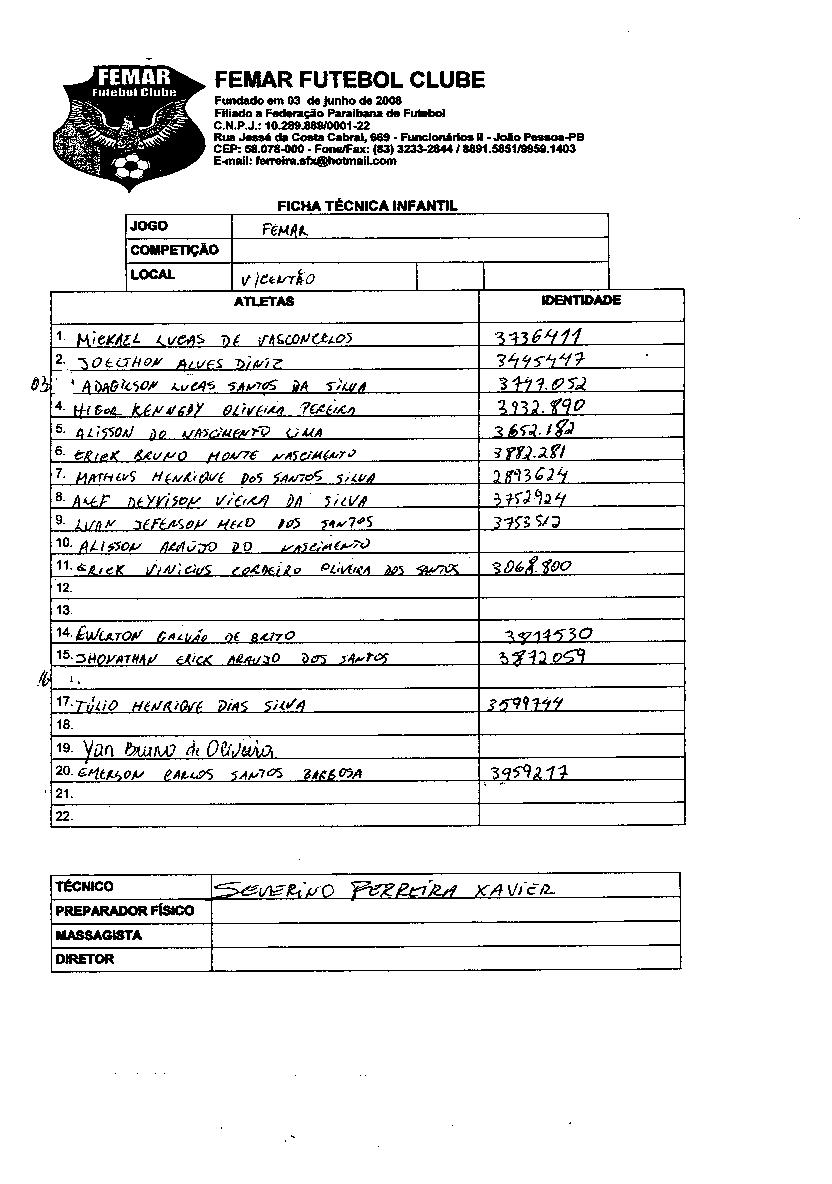 FEMAR
Futebol Clube
FEMAR FUTEBOL CLUBE
Fundado em 03 de junho de 2008
Filiado a Federação Paraibana de Futebol
C.N.P.J.: 10.289.889/0001-22
Rua Jessé da Costa Cabral, 669 - Funcionários II - João Pessoa-PB
CEP: 58.078-000 - Fone/Fax: (83) 3233-2844 / 8891.5851/9959.1403
E-mail: ferreira.sfx@hotmail.com
FICHA TÉCNICA INFANTIL
JOGO FEMAR
COMPETIÇÃO
LOCAL VICENTÃO
ATLETAS IDENTIDADE
1. MICKAEL LUCAS DE VASCONCELOS 3736411
2. JOELTHON ALVES DINIZ 3445447
03 ADAGILSON LUCAS SANTOS DA SILVA 3777.052
4. HIGOR KENNEDY OLIVEIRA PEREIRA 3932.890
5. ALISSON DO NASCIMENTO LIMA 3652.182
6. ERICK BRUNO MONTE NASCIMENTO 3882.281
7. MATHEUS HENRIQUE DOS SANTOS SILVA 2893624
8. ALEF DEYVISON VIEIRA DA SILVA 3752924
9. LUAN JEFERSON MELO DOS SANTOS 3753512
10. ALISSON ARAÚJO DO NASCIMENTO
11. ERICK VINICIUS CORDEIRO OLIVEIRA DOS SANTOS 3068.800
12.
13.
14. EWERTON GALVÃO DE BRITO 3817530
15. JHONATHAN ERICK ARAUJO DOS SANTOS 3872059
16
17. TÚLIO HENRIQUE DIAS SILVA 3599744
18.
19. Yan Bruno de Oliveira
20. EMERSON CARLOS SANTOS BARBOSA 3959217
21.
22.
TÉCNICO SEVERINO FERREIRA XAVIER
PREPARADOR FÍSICO
MASSAGISTA
DIRETOR